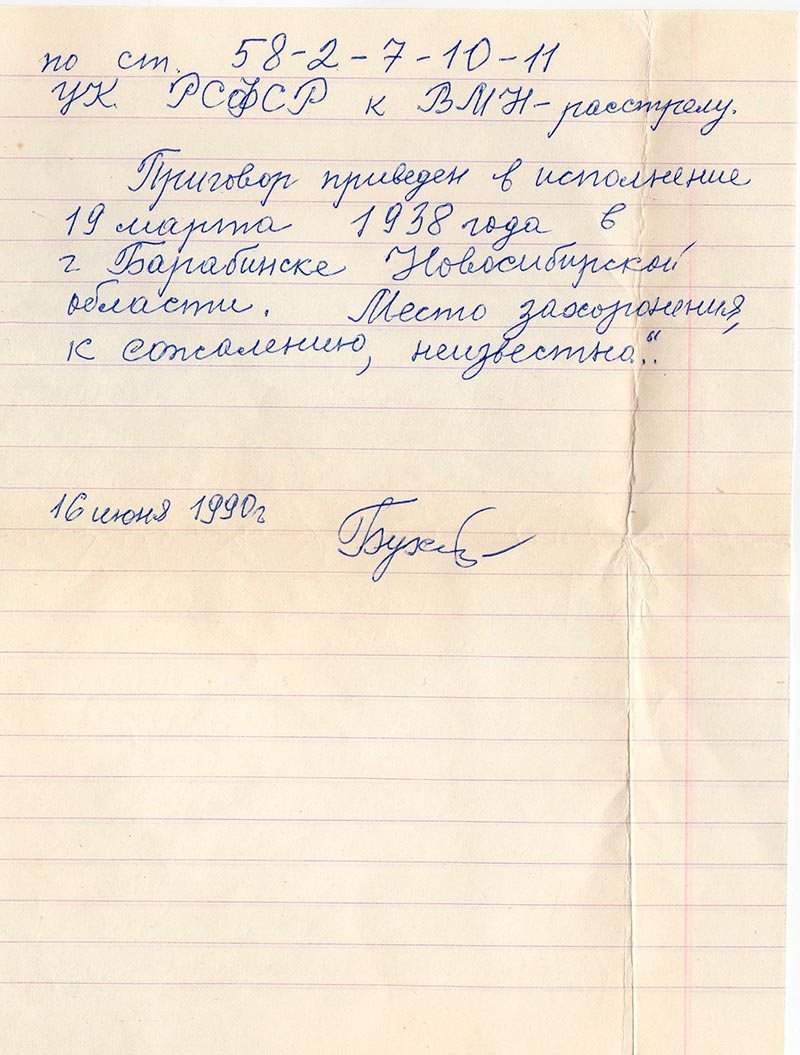 по ст. 58-2-7-10-11
УК РСФСР к ВМН - расстрелу.
Приговор приведен в исполнение
19 марта 1938 года в
г Барабинске Новосибирской
области. Место захоронения,
к сожалению, неизвестно".
16 июня 1990г